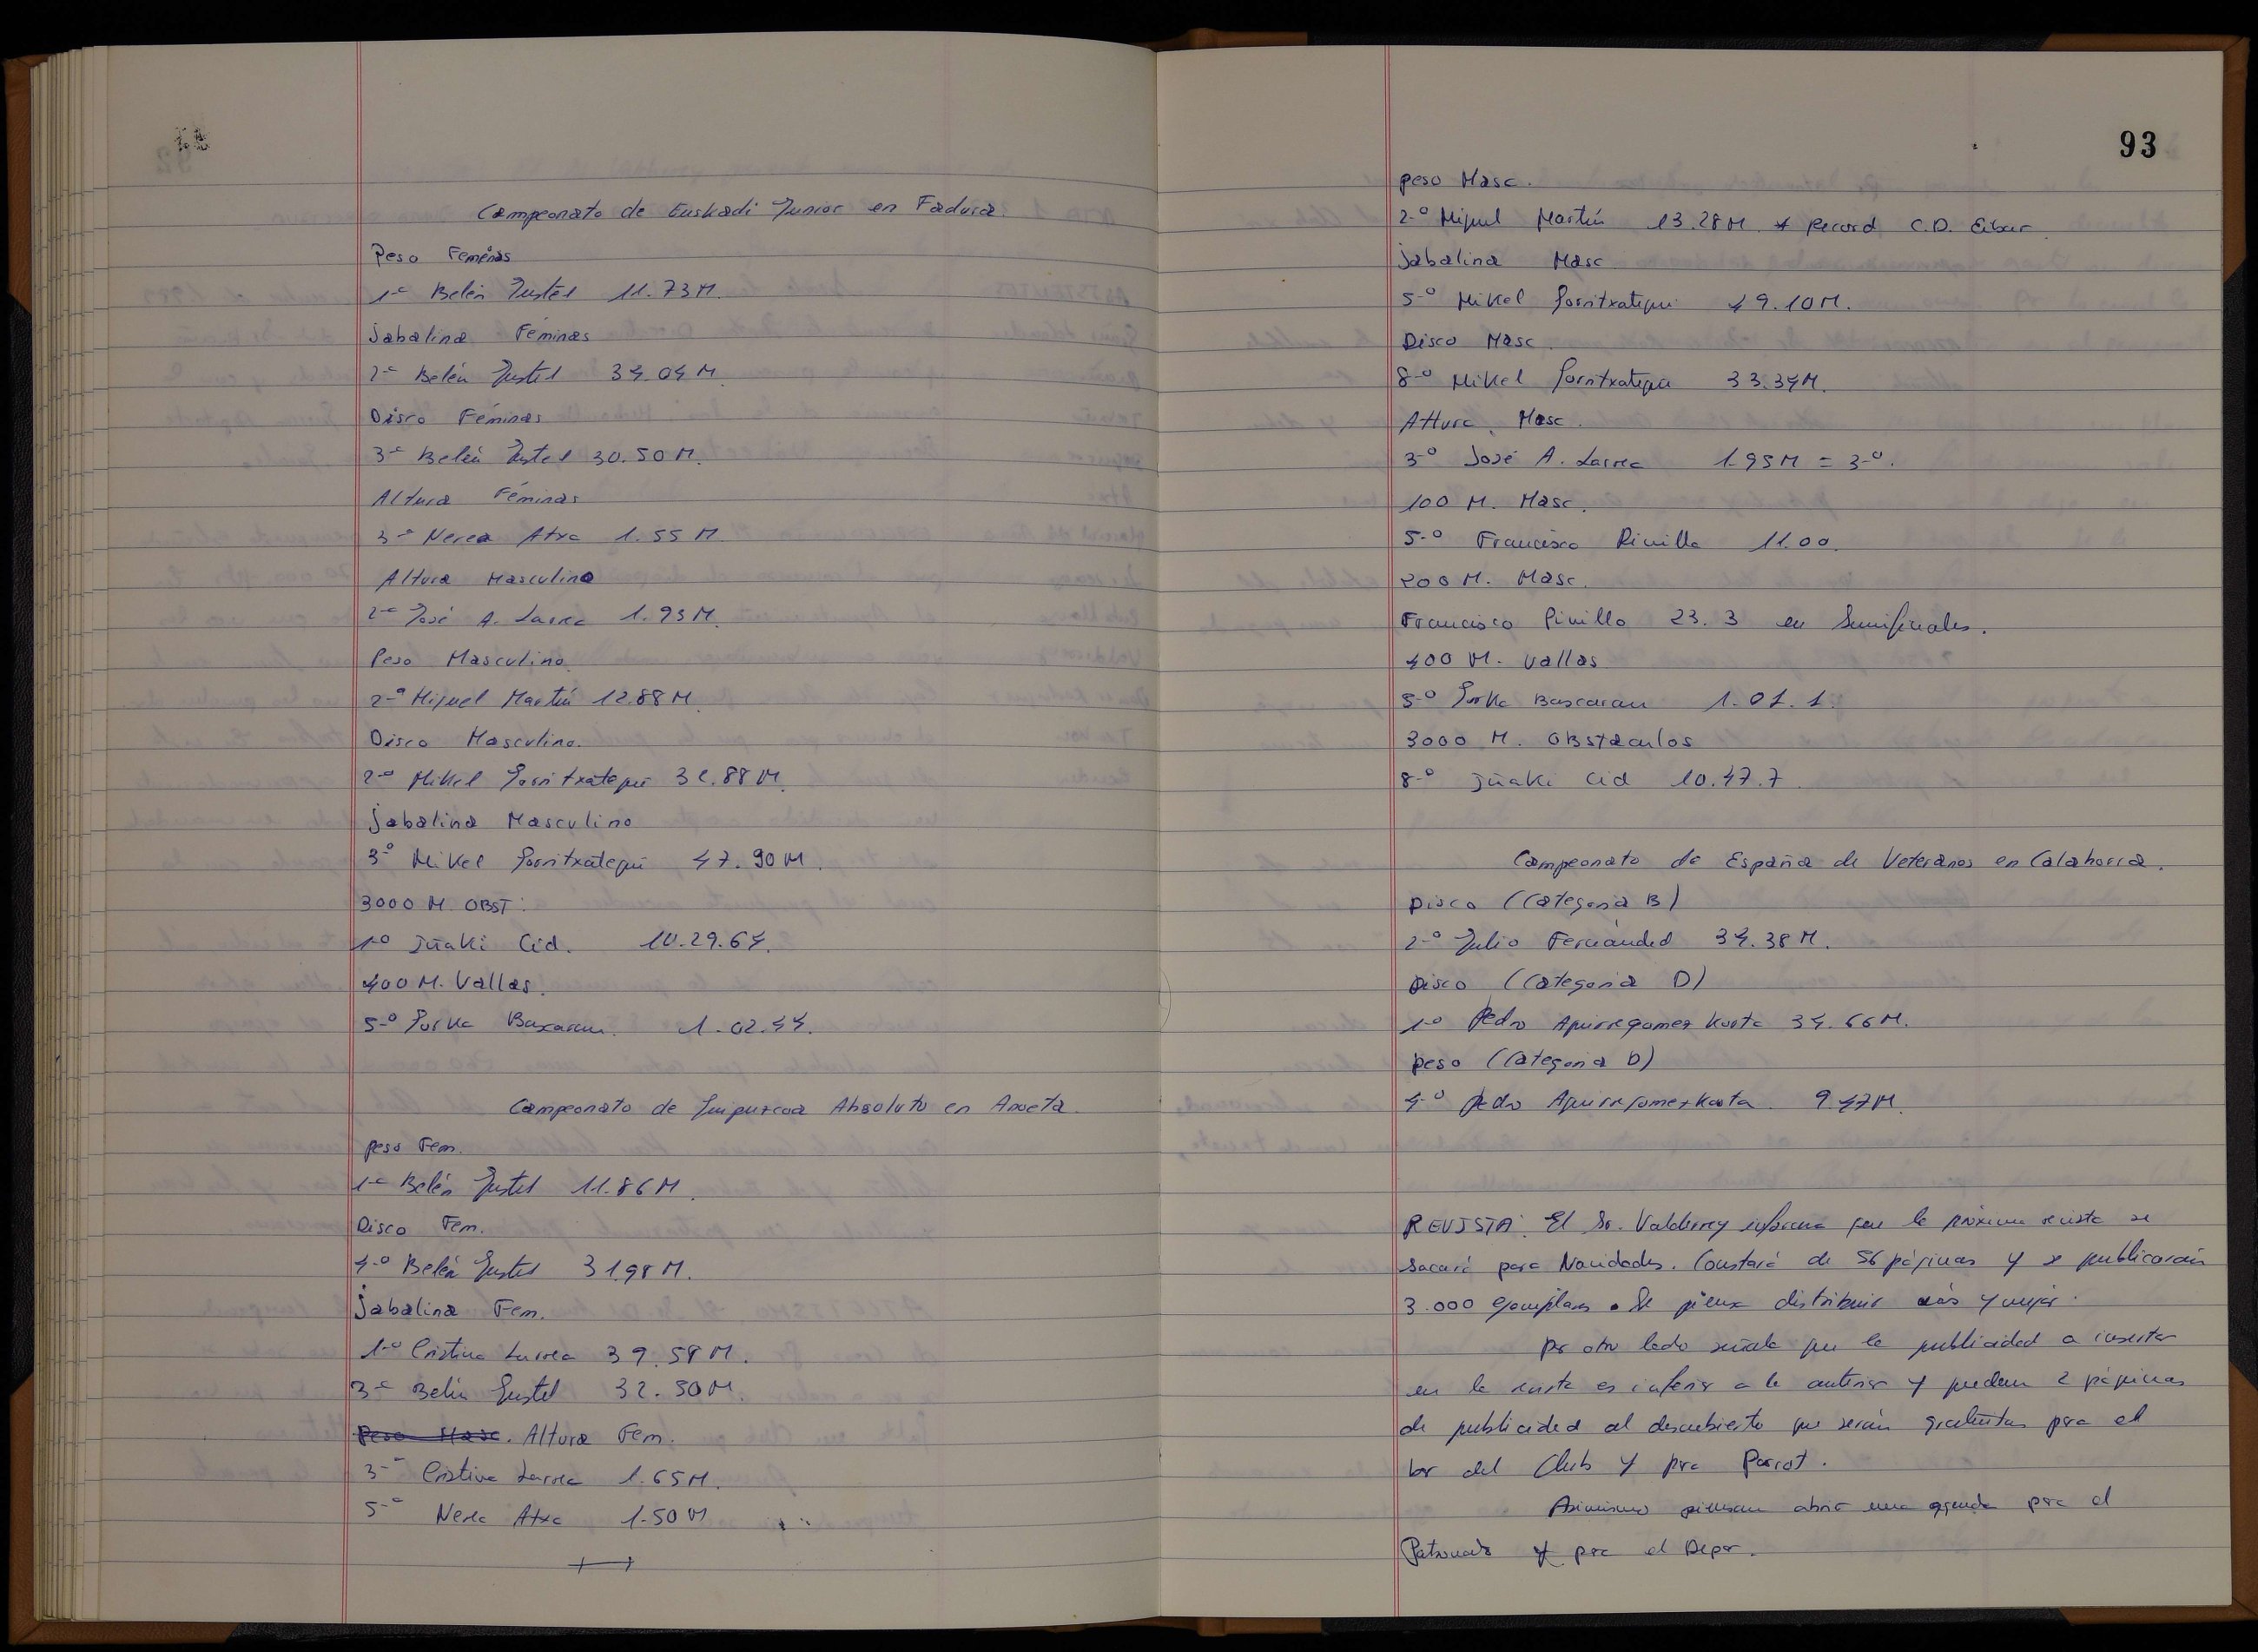 Campeonato de Euskadi Junior en Fadura.
Peso Feminas
1-ª Belén Justel 11.73 M.
Jabalina Féminas
2-ª Belén Justel 34.04 M.
Disco Féminas
3-ª Belén Justel 30.50 M.
Altura Féminas
3-ª Nerea Atxa 1.55 M
Altura Masculino
2-º José A. Larrea 1.93 M.
Peso Masculino.
2-º Miguel Martín 12.88 M.
Disco Masculino.
2-º Mikel Gorritxategui 32.88 M.
Jabalina Masculino
3-º Mikel Gorritxategui 47.90 M.
3000 M. OBST:
1-º Iñaki Cid. 10.29.64.
400 M. Vallas.
5-º Gorka Baxaran. 1.02.44.
Campeonato de Guipuzcoa Absoluto en Anoeta.
peso Fem.
1-ª Belén Justel 11.86 M.
Disco Fem.
4-º Belén Justel 31.98 M.
Jabalina Fem.
1-º Cristina Larrea 39.58 M.
3-ª Belén Justel 32.50 M.
Peso Masc. Altura Fem.
3-ª Cristina Larrea 1.65 M.
5-ª Nerea Atxa 1.50 M
93
peso Masc.
2-º Miguel Martín 13.28 M. * Record C.D. Eibar.
Jabalina Masc
5-º Mikel Gorritxategui 49.10 M.
Disco Masc.
8-º Mikel Gorritxategui 33.34 M.
Altura Masc.
3-º José A. Larrea 1.95 M = 3-º.
100 M. Masc.
5-º Francisco Pinilla 11.00.
200 M. Masc.
Francisco Pinilla 23.3 en Semifinales.
400 M. vallas
5-º Gorka Bascaran 1.01.1.
3000 M. OBstaculos
8-º Iñaki Cid 10.47.7.
Campeonato de España de Veteranos en Calahorra.
Disco (Categoria B)
2-º Julio Fernánded 34.38 M.
Disco (Categoria D)
1-º Pedro Aguirregomezkorta 34.66 M.
peso (Categoria D)
4-º Pedro Aguirregomezkorta. 9.47 M.
REVISTA: El Sr. Valderrey informa que la próxima revista se
sacará para Navidades. Constará de 56 páginas y se publicarán
3.000 ejemplares. Se piensa distribuir más y mejor.
Por otro lado señala que la publicidad a insertar
en la revista es inferior a la anterior y quedan 2 páginas
de publicidad al descubierto que serán gratuitas para el
bar del Club y para Parrot.
Asimismo piensan abrir una agenda para el
Patronato y para el Depor.